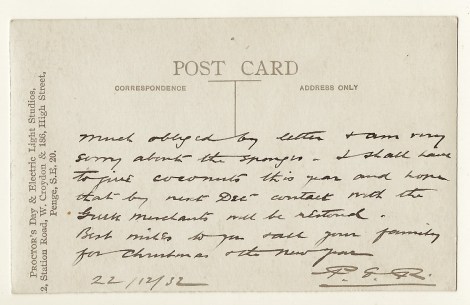 PROCTOR'S Day & Electric Light Studios,
2, Station Road, W. Croydon & 186, High Street,
Penge, S.E. 20.
POST CARD
CORRESPONDENCE
ADDRESS ONLY
Much obliged by letter & am very
sorry about the sponges. I shall have
to give coconuts this year and hope
that by next Dec contact with the
Greek Merchants will be restored.
Best wishes to you & all your family
for Christmas & the New Year
22/12/32